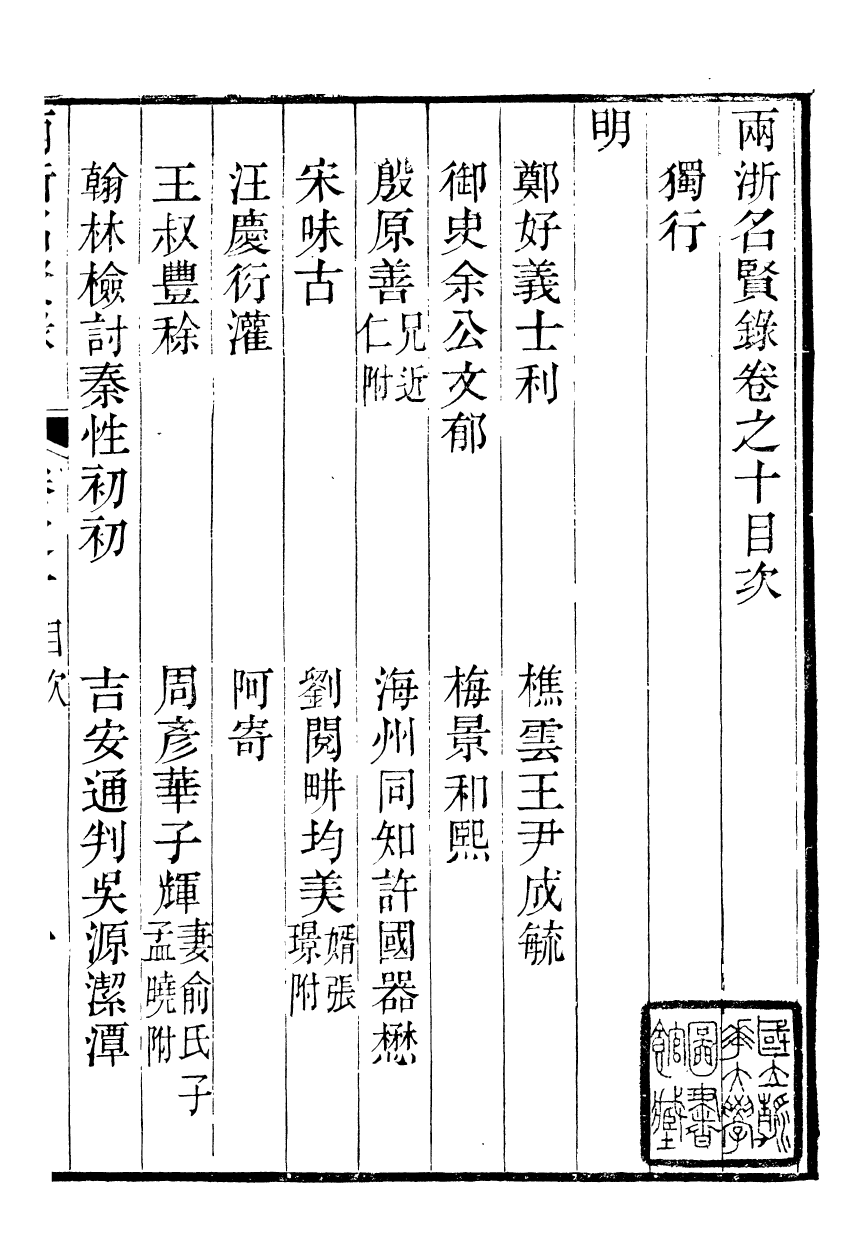 兩浙名賢錄卷之十目次
獨行
明
鄭好義士利　樵雲王尹成毓
御史余公文郁　梅景和熙
殷原善兄近仁附　海州同知許國器懋
宋味古　劉閱畊均美婿張璟附
汪慶衍灌　阿寄
王叔豐稌　周彥華子輝妻俞氏子孟曉附
翰林檢討秦性初初　吉安通判吳源潔潭
兩浙名賢錄　卷之十目次
國立清華大學圖書館藏